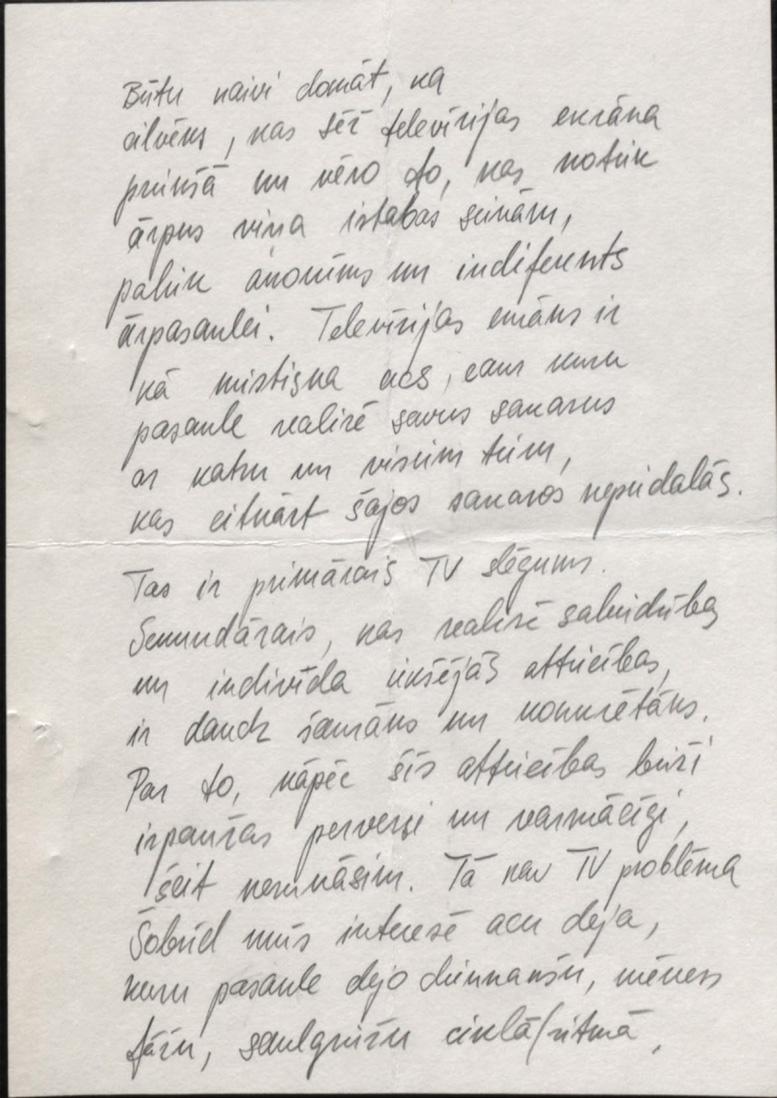 Būtu naivi domāt, ka
cilvēks, kas sēž televīzijas ekrāna
priekšā un vēro to, kas notiek
ārpus viņa istabas sienām,
paliek anonīms un indiferents
ārpasaulei. Televīzijas ekrāns ir
kā mistiska acs, caur kuru
pasaule realizē savus sakarus
ar katru un visiem tiem,
kas eitnārt šajos sakaros nepiedalās.
Tas ir primārais TV slēgums.
Sekundārais, kas realizē sabiedrības
un indivīda iekšējās attiecības,
ir daudz šaurāks un konkrētāks.
Par to, kāpēc šīs attiecības bieži
izpaužas perversi un varmācīgi,
šeit nerunāsim. Tā nav TV problēma
Šobrīd mūs interesē acu deja,
kuru pasaule dejo diennakšu, mēness
fāžu, saulgriežu ciklā/ritmā,